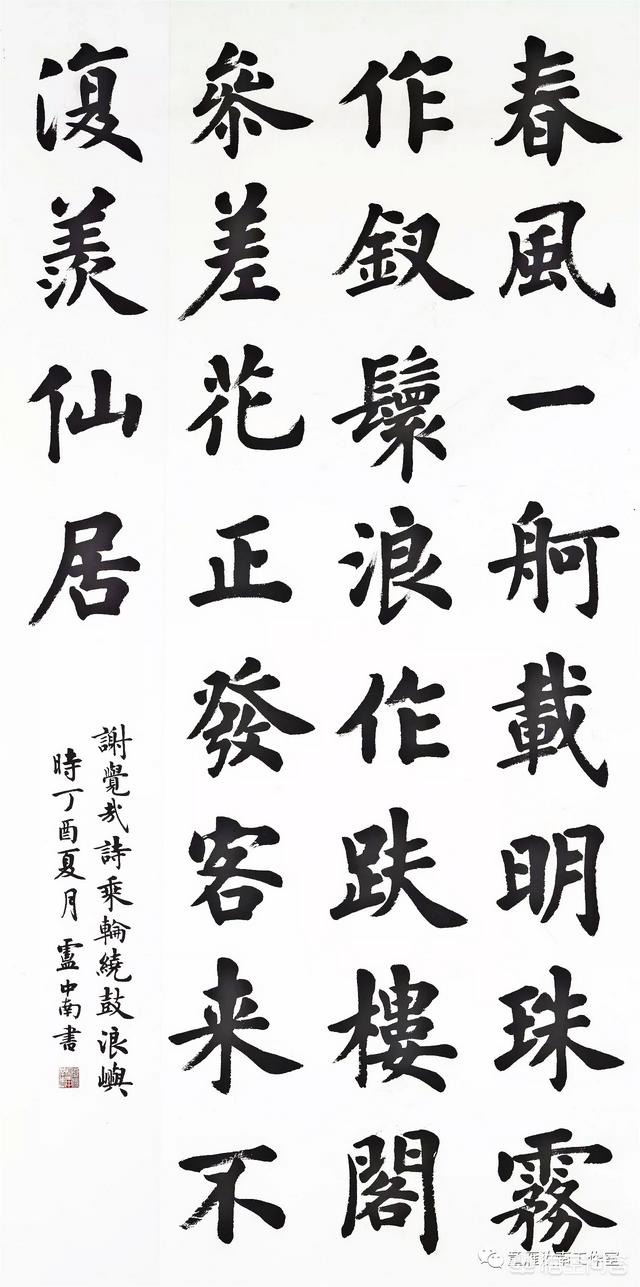 春風一舸載明珠霧
作釵鬟浪作趺樓閣
參差花正發客来不
復羨仙居
謝覺哉詩乘輪繞鼓浪嶼
時丁酉夏月 盧中南書